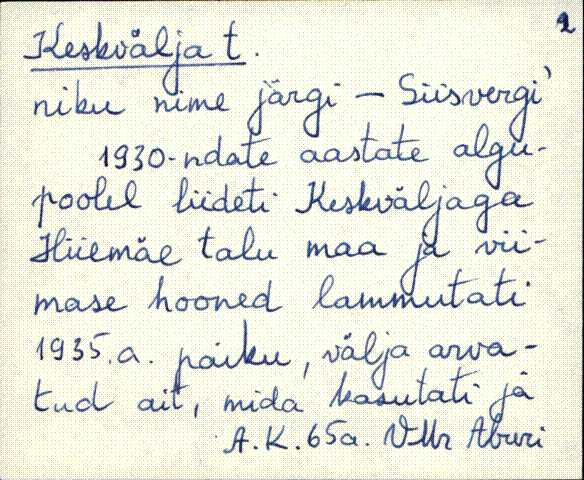 2
Keskvälja t.
niku nime järgi – Siisvergi'
1930-ndate aastate algu-
poolel liideti Keskväljaga
Hiiemäe talu maa ja vii-
mase hooned lammutati
1935.a. paiku, välja arva-
tud ait, mida kasutati jä
A.K. 65a. VMr Aburi